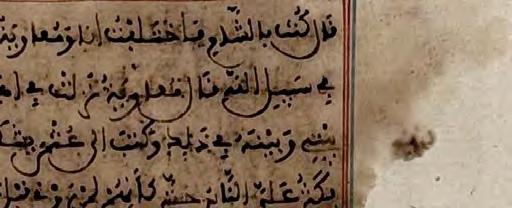 قال كنت بالشام فاختلفت انا ومعاوية
في سبيل الله قال معاوية نزلت في
بيني وبينه في ذلك وكتب الى عثمن
فكثر علي الناس حتى كأنهم لم